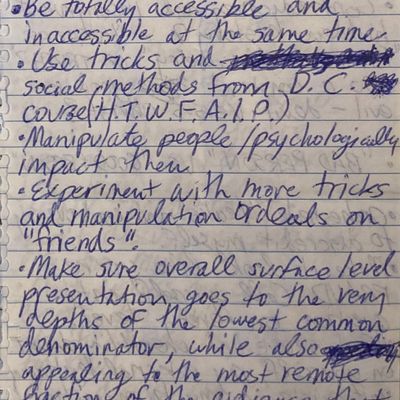 • Be totally accessible and
inaccessible at the same time.
• Use tricks and
social methods from D. C.
course (H.T.W.F.A.I.P.)
• Manipulate people/psychologically
impact them
• Experiment with more tricks
and manipulation ordeals on
"friends".
• Make sure overall surface level
presentation goes to the very
depths of the lowest common
denominator, while also
appealing to the most remote
of the audience that